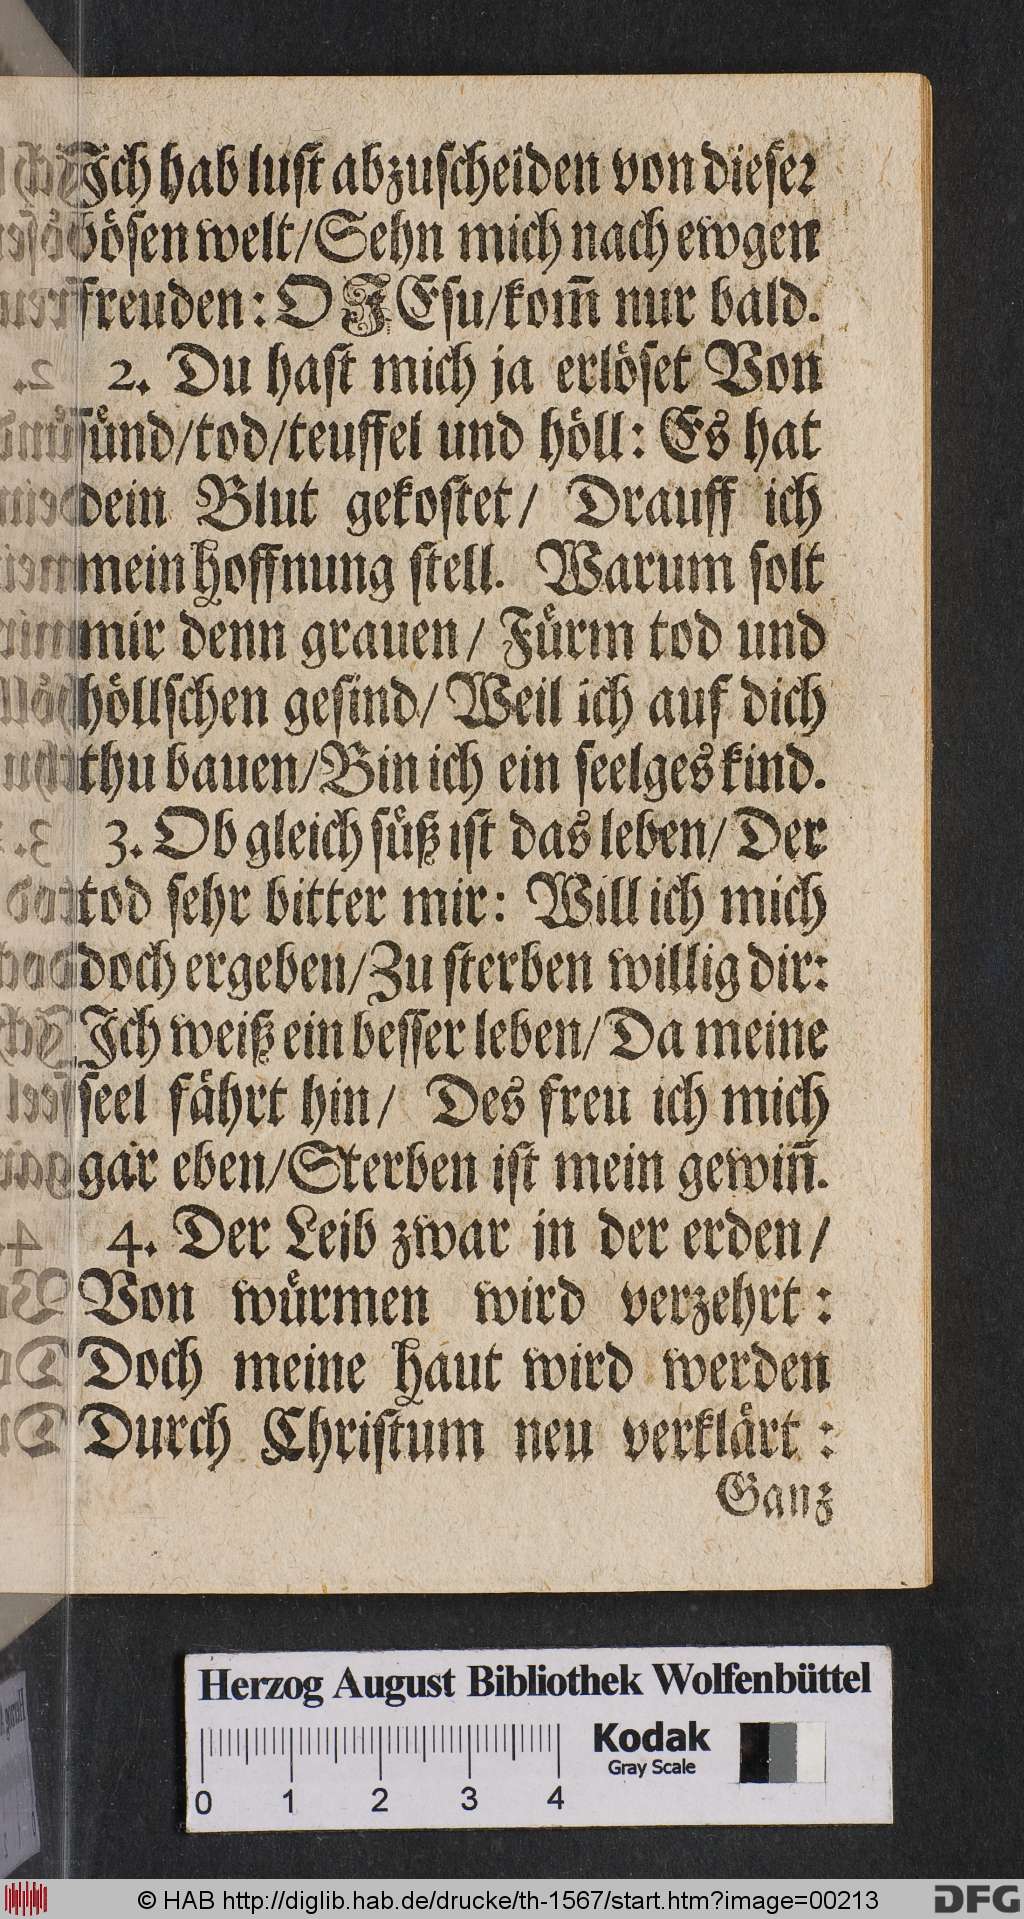 Ich hab lust abzuscheiden von dieser
bösen welt/Sehn mich nach ewgen
freuden: O JEsu/kom̃ nur bald.
2. Du hast mich ja erlöset Von
sünd/tod/teuffel und höll: Es hat
dein Blut gekostet/ Drauff ich
mein hoffnung stell. Warum solt
mir denn grauen/ Fürm tod und
höllschen gesind/ Weil ich auf dich
thu bauen/Bin ich ein seelges kind.
3. Ob gleich süß ist das leben/ Der
tod sehr bitter mir: Will ich mich
doch ergeben/Zu sterben willig dir:
Ich weiß ein besser leben/ Da meine
seel fährt hin/ Des freu ich mich
gar eben/Sterben ist mein gewiñ.
4. Der Leib zwar in der erden/
Von würmen wird verzehrt:
Doch meine haut wird werden
Durch Christum neu verklärt:
Ganz
Herzog August Bibliothek Wolfenbüttel
Kodak
Gray Scale
0 1 2 3 4
© HAB http://diglib.hab.de/drucke/th-1567/start.htm?image=00213
DFG